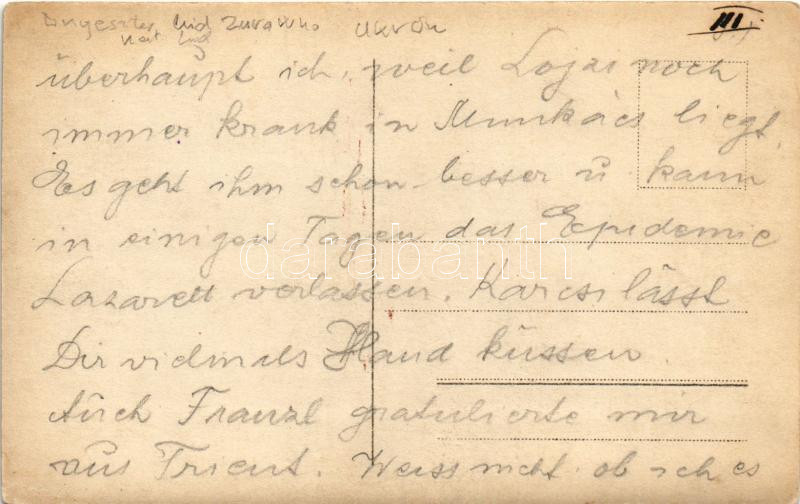 híd Zurawno Ukrán
III
überhaupt ich, weil Lojzi noch
immer krank in Munkács liegt.
Es geht ihm schon besser u. kann
in einigen Tagen das Epidemie
Lazarett verlassen. Karcsi lässt
Dir vielmals Hand küssen.
Auch Franzl gratulierte mir
aus Trient. Weiss nicht ob ich es
darabanth